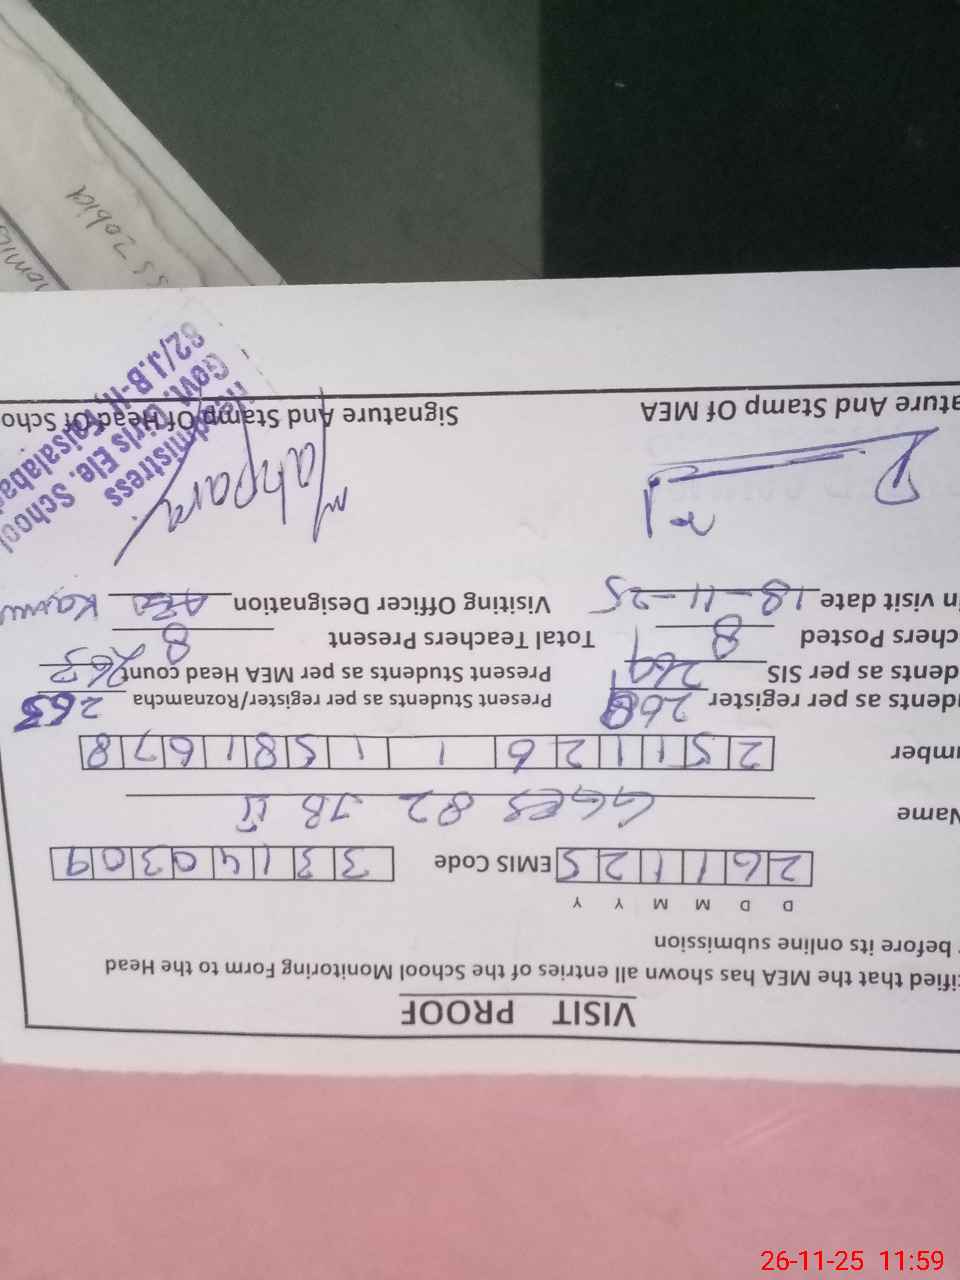 VISIT PROOF
tified that the MEA has shown all entries of the School Monitoring Form to the Head
before its online submission
D D M M Y Y
261125 EMIS Code 33140309
Name GGES 82 JB II
mber 2511126115816 78
dents as per register 268 Present Students as per register/Roznamcha 265
dents as per SIS 269 Present Students as per MEA Head count 263
chers Posted 8 Total Teachers Present 8
in visit date 18-11-25 Visiting Officer Designation AEO
Mahpara
ature And Stamp Of MEA Signature And Stamp Of Head Of Scho
Headmistress
Govt. Girls Ele. School
82/J.B-II, Faisalabad
26-11-25 11:59